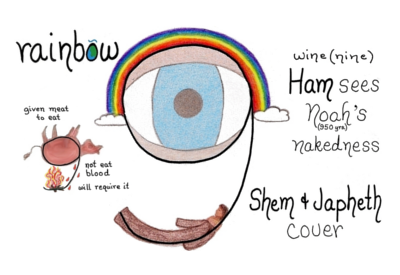 rainbow
given meat
to eat
not eat
blood
will require it
wine (nine)
Ham sees
Noah's
(950 yrs)
nakedness
Shem & Japheth
cover